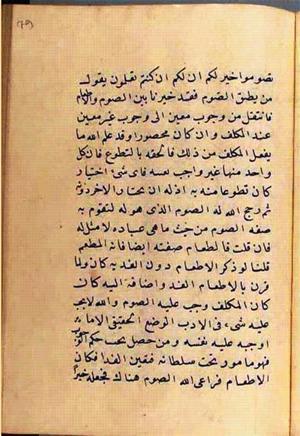 تصوموا خير لكم ان لكم ان كنتم تعلمون يقول
من يطق الصوم فقد خيرنا بين الصوم والاطعام
فانتقل من وجوب معين الى وجوب غير معين
عند المكلف وان كان محصورا وقد علم الله ما
يفعل المكلف من ذلك فالحقه بالتطوع فان كل
واحد منهما غير واجب بعينه فاى شىء اختار
كان تطوعا منه به اذ له ان يختار الاخر دونه
ثم رجح الله له الصوم الذى هو له لتقوم به
صفه الصوم من حيث ما هى عباده لا مثل له
فان قلت فالطعام صفته ايضا فانه المطعم
قلنا لو ذكر الاطعام دون الفديه كان ولما
قرن بالاطعام الفدا واضافه اليه كان
كان المكلف وجب عليه الصوم والله لا يجب
عليه شىء فى الادب الوضع الحقيقى الاما
اوجبه على نفسه ومن حصل تحت حكم الوجوب
فهو ماسور تحت سلطانه فتعين الفدا فكان
الاطعام فراعى الله الصوم هناك فجعله خيرا